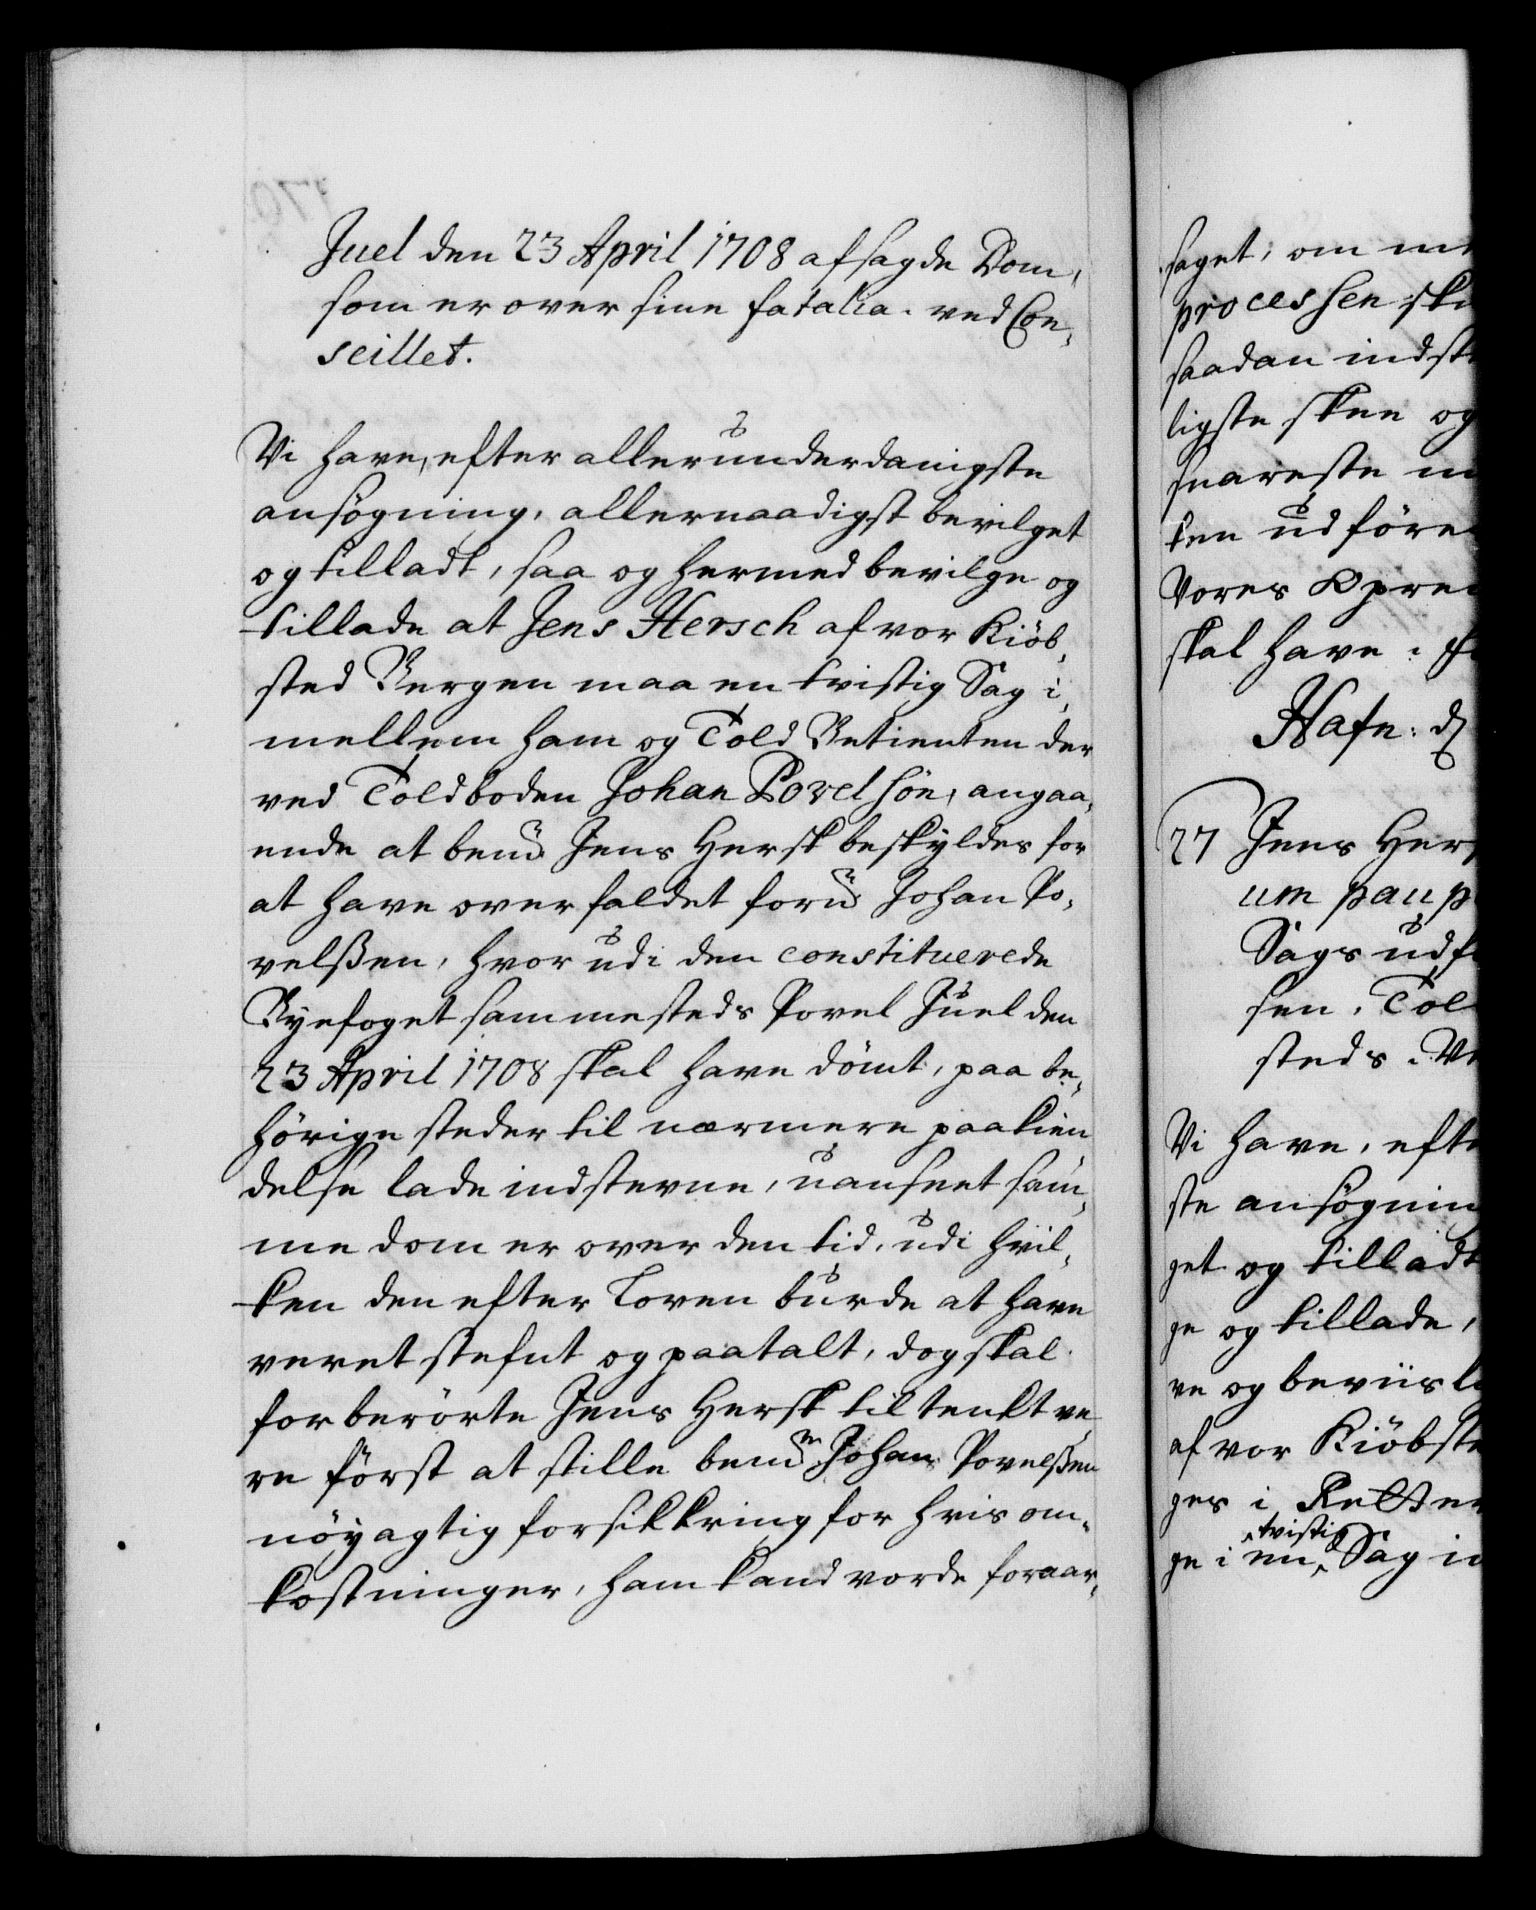 Juel den 23 April 1708 afsagde Dom,
som er over sine fatalia. ved Con,
seillet.
Vi have, efter allerunderdanigste
ansøgning, allernaadigst bevilget
og tilladt, saa og hermed bevilge og
tillade at Jens Hersch af vor Kiöb,
sted Bergen maa en tvistig Sag i,
mellem ham og Told Betienten der
ved Toldboden Johan Povelsön, angaa,
ende at bem.te Jens Hersk beskyldes for
at have overfaldet forn.te Johan Po,
velßen, hvor udi den constituerede
Byefoget sammesteds Povel Juel den
23 April 1708 skal have dömt, paa be,
hörige steder til nærmere paakien
delse lade indstevne, uanseet sam,
me dom er over den tid, udi hvil,
ken den efter Loven burde at have
veret stefnt og paatalt, dog skal
forberörte Jens Hersk tiltenkt ve
re först at stille bem.te Johan Povelßen
nöyagtig forsikkring for hvis om,
kostninger, ham kand vorde foraar,
saget, om
processen
saadan indst
ligste skee og
snareste
ten udföre
Vores Opre
skal have.
Hafn: d
27 Jens Her
um paup
Sags udf
sen, Tol
steds.
Vi have, eft
ste ansøgnin
get og tilladt
ge og tillade,
ve og beviis
af vor Kiöbste
ges i Retten
ge i en tvistig Sag i